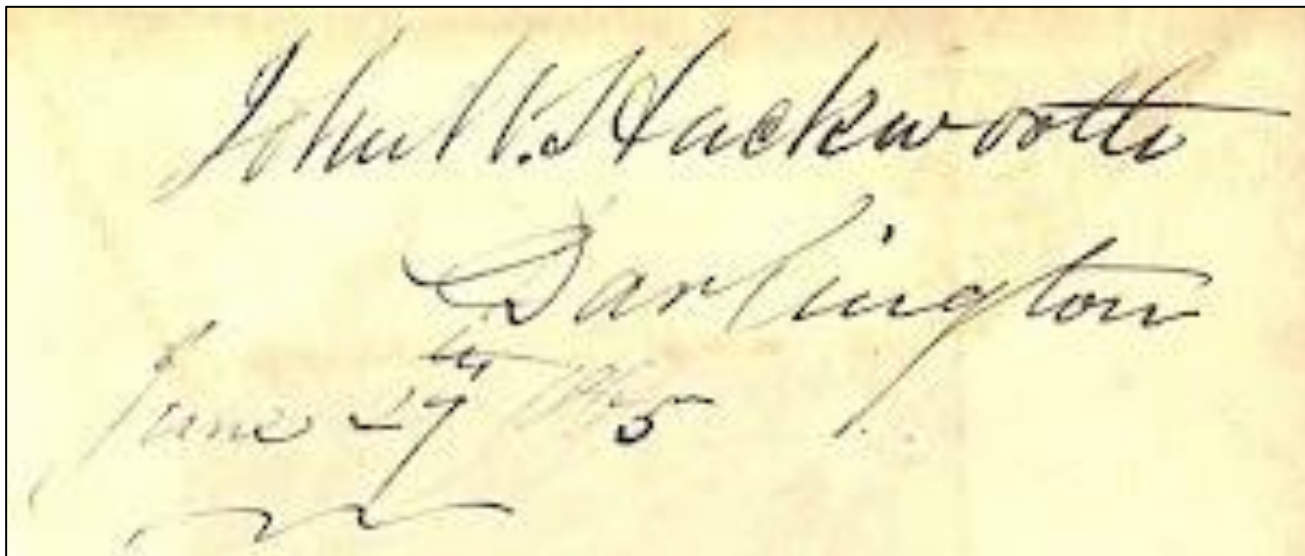 John W. Hackworth
Darlington
June 29th